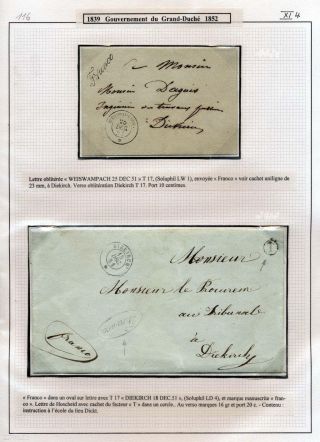 116
1839 Gouvernement du Grand-Duché 1852
XI 4
Franco
à Monsieur
Monsieur Dagues
Ingénieur des travaux publics
Diekirch
25
DEC
Lettre oblitérée « WEISWAMPACH 25 DEC 51 » T 17, (Soluphil LW 1), envoyée « Franco » voir cachet uniligne de
23 mm, à Diekirch. Verso oblitération Diekirch T 17. Port 10 centimes.
DIEKIRCH
T
Monsieur,
Monsieur le Procureur
au Tribunal
à
Diekirch
franco
« Franco » dans un oval sur lettre avec T 17 « DIEKIRCH 18 DEC.51 », (Soluphil LD 4), et marque manuscrite « fran-
co ». Lettre de Hoscheid avec cachet du facteur « T » dans un cercle. Au verso marques 16 gr et port 20 c. - Contenu :
instruction à l'école du lieu Dickt.